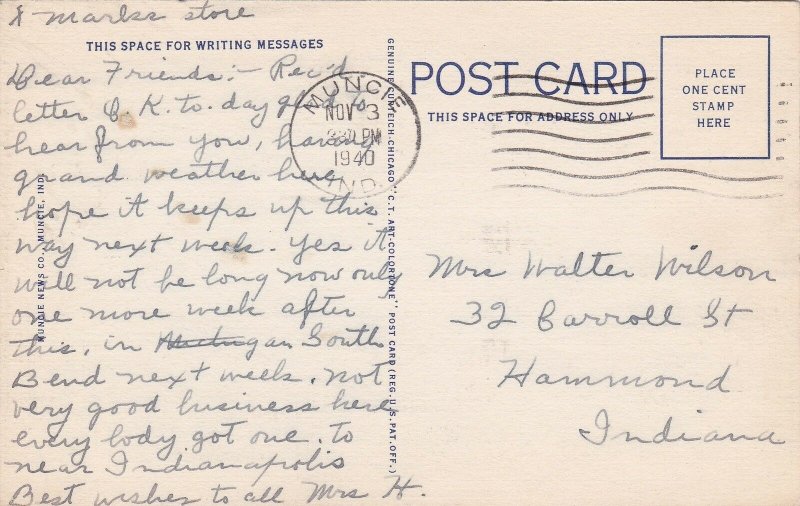 & Marks store
THIS SPACE FOR WRITING MESSAGES
Dear Friends:- Rec'd
letter O.K. to.day glad to
hear from you, having
grand weather here
hope it keeps up this
way next week. Yes it
will not be long now only
one more week after
this, in Michigan South
Bend next week. not
very good business here
every body got one. to
near Indianapolis
Best wishes to all Mrs H.
MUNCIE NEWS CO., MUNCIE, IND.
GENUINE CURTEICH-CHICAGO "C.T. ART-COLORTONE" POST CARD (REG. U.S. PAT. OFF.)
MUNCIE
NOV 3
330 PM
1940
IND.
POST CARD
THIS SPACE FOR ADDRESS ONLY
PLACE
ONE CENT
STAMP
HERE
Mrs Walter Wilson
32 Carroll St
Hammond
Indiana